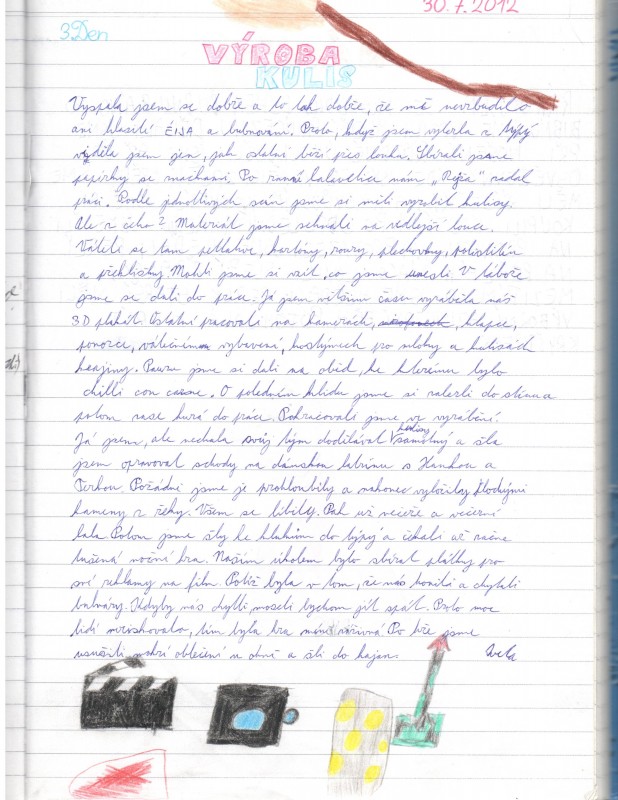 30.7.2012
3.Den
VÝROBA
KULIS
Vyspala jsem se dobře a to tak dobře, že mě nevzbudilo
ani hlasité a bubnování. Proto, když jsem vylezla z týpý
viděla jsem jen, jak ostatní běží přes louku. Sbírali jsme
papírky se značkami. Po ranní nám „Režia" zadal
práci. Podle jednotlivých scén jsme si měli vyrobit kulisy.
Ale z čeho? Materiál jsme sehnali na vedlejší louce.
Váleli se tam petlahve, kartóny, roury, plechovky, polistilén
a překližky. Mohli jsme si vzít, co jsme unesli. V táboře
jsme se dali do práce. Já jsem většinu času vyráběla náš
3D plakát. Ostatní pracovali na kamerách, klapce,
ponorce, válečném vybavení, kostýmech pro mloky a kulisách
krajiny. Pauzu jsme si dali na oběd, ke kterému bylo
chilli con carne. O poledním klidu jsme si zalezli do stínu a
potom zase hurá do práce. Pokračovali jsme ve vyrábění.
Já jsem, ale nechala svůj tým dodělávat kulisy samotný a šla
jsem opravovat schody na dámskou latrínu s Hankou a
Terkou. Pořádně jsme je prohloubily a nakonec vyložily plochými
kameny z řeky. Všem se líbily. Pak už večeře a večerní
lala. Potom jsme šly ke klukům do týpý a čekali už
tušená noční hra. Naším úkolem bylo sbírat plátky pro
své reklamy na film. Potíž byla v tom, že nás honili a chytali
bulváry. Kdyby nás chytli museli bychom jít zpát. Proto moc
lidí neriskovalo, tím byla hra méně Po hře jsme
usušili mokré oblečení u ohně a šli do hajan. Iveta